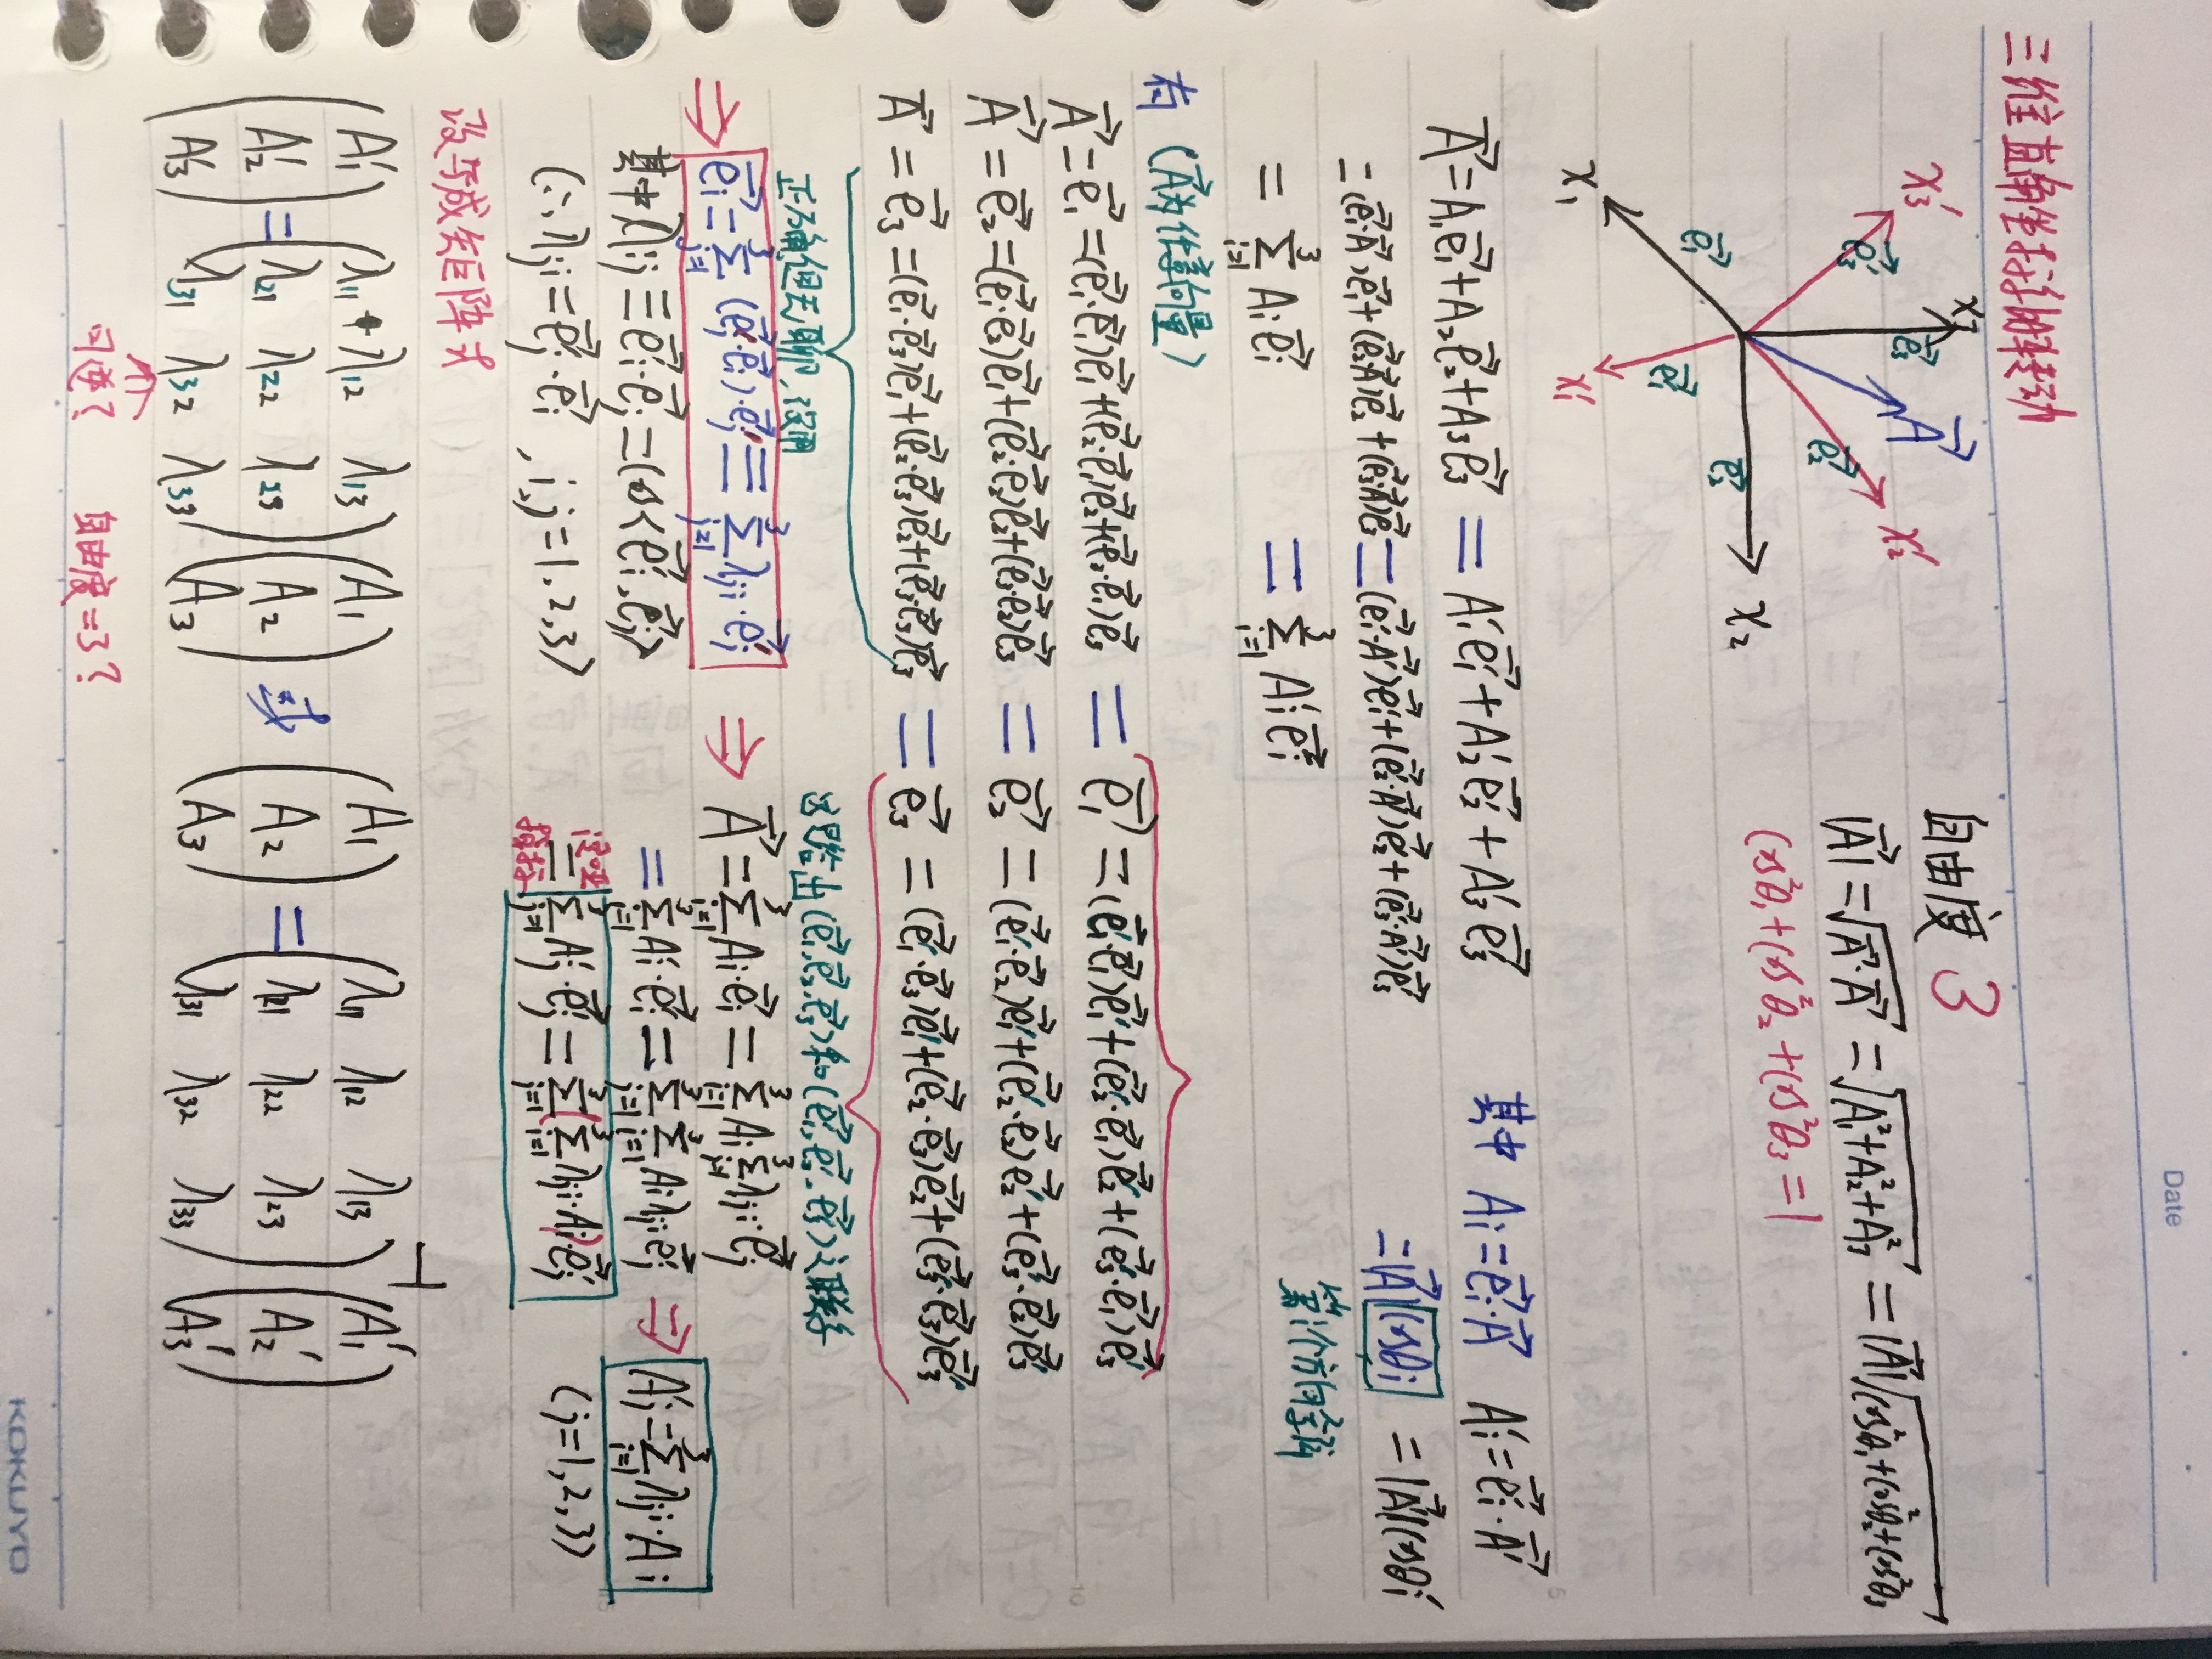 Date
三维直角坐标轴转动
x₃
x₃′
e⃗₃′
e⃗₃
A⃗
x₂′
e⃗₂′
x₂
e⃗₂
e⃗₁
e⃗₁′
x₁
x₁′
自由度 3
|A⃗| = √(A⃗·A⃗) = √(A₁²+A₂²+A₃²) = |A⃗|√(cos²θ₁+cos²θ₂+cos²θ₃
cos²θ₁+cos²θ₂+cos²θ₃=1
A⃗=A₁e⃗₁+A₂e⃗₂+A₃e⃗₃ = A₁′e⃗₁′+A₂′e⃗₂′+A₃′e⃗₃′
其中 Aᵢ=e⃗ᵢ·A⃗ Aᵢ′=e⃗ᵢ′·A⃗′
=(e⃗₁·A⃗)e⃗₁+(e⃗₂·A⃗)e⃗₂+(e⃗₃·A⃗)e⃗₃=(e⃗₁′·A⃗′)e⃗₁′+(e⃗₂′·A⃗′)e⃗₂′+(e⃗₃′·A⃗′)e⃗₃′
=|A⃗|cosθᵢ =|A⃗′|cosθᵢ′
第i个方向余弦
= Σ(i=1→3) Aᵢe⃗ᵢ = Σ(i=1→3) Aᵢ′e⃗ᵢ′
有 (A⃗为任意向量)
A⃗=e⃗₁=(e⃗₁·e⃗₁)e⃗₁+(e⃗₂·e⃗₁)e⃗₂+(e⃗₃·e⃗₁)e⃗₃ = e⃗₁ =(e⃗₁′·e⃗₁)e⃗₁′+(e⃗₂′·e⃗₁)e⃗₂′+(e⃗₃′·e⃗₁)e⃗₃′
A⃗=e⃗₂=(e⃗₁·e⃗₂)e⃗₁+(e⃗₂·e⃗₂)e⃗₂+(e⃗₃·e⃗₂)e⃗₃ = e⃗₂ =(e⃗₁′·e⃗₂)e⃗₁′+(e⃗₂′·e⃗₂)e⃗₂′+(e⃗₃′·e⃗₂)e⃗₃′
A⃗=e⃗₃=(e⃗₁·e⃗₃)e⃗₁+(e⃗₂·e⃗₃)e⃗₂+(e⃗₃·e⃗₃)e⃗₃ = e⃗₃ =(e⃗₁′·e⃗₃)e⃗₁′+(e⃗₂·e⃗₃)e⃗₂+(e⃗₃′·e⃗₃)e⃗₃′
正确但无聊,没用
给出(e⃗₁,e⃗₂,e⃗₃)和(e⃗₁′,e⃗₂′,e⃗₃′)之联系
⇒ e⃗ᵢ=Σ(j=1→3)(e⃗ⱼ′·e⃗ᵢ)·e⃗ⱼ′≡Σ(j=1→3)λⱼᵢ·e⃗ⱼ′
⇒ A⃗=Σ(i=1→3)Aᵢ·e⃗ᵢ=Σ(i=1→3)AᵢΣ(j=1→3)λⱼᵢ·e⃗ⱼ′
其中λᵢⱼ≡e⃗ᵢ′·e⃗ⱼ=cos<e⃗ᵢ′,e⃗ⱼ>
=Σ(i=1→3)Aᵢ′·e⃗ᵢ′=Σ(j=1→3)Σ(i=1→3)Aᵢλⱼᵢe⃗ⱼ′ ⇒ Aⱼ′=Σ(i=1→3)λⱼᵢ·Aᵢ
(∴λⱼᵢ=e⃗ⱼ′·e⃗ᵢ ,i,j=1,2,3)
换指标
=Σ(j=1→3)Aⱼ′·e⃗ⱼ′=Σ(j=1→3)(Σ(i=1→3)λⱼᵢ·Aᵢ)·e⃗ⱼ′
(j=1,2,3)
改写成矩阵式
(A₁′) (λ₁₁ λ₁₂ λ₁₃)(A₁) (A₁) (λ₁₁ λ₁₂ λ₁₃)⁻¹(A₁′)
(A₂′)=(λ₂₁ λ₂₂ λ₂₃)(A₂) 或 (A₂)=(λ₂₁ λ₂₂ λ₂₃)(A₂′)
(A₃′) (λ₃₁ λ₃₂ λ₃₃)(A₃) (A₃) (λ₃₁ λ₃₂ λ₃₃)(A₃′)
可逆? 自由度=3?
KOKUYO